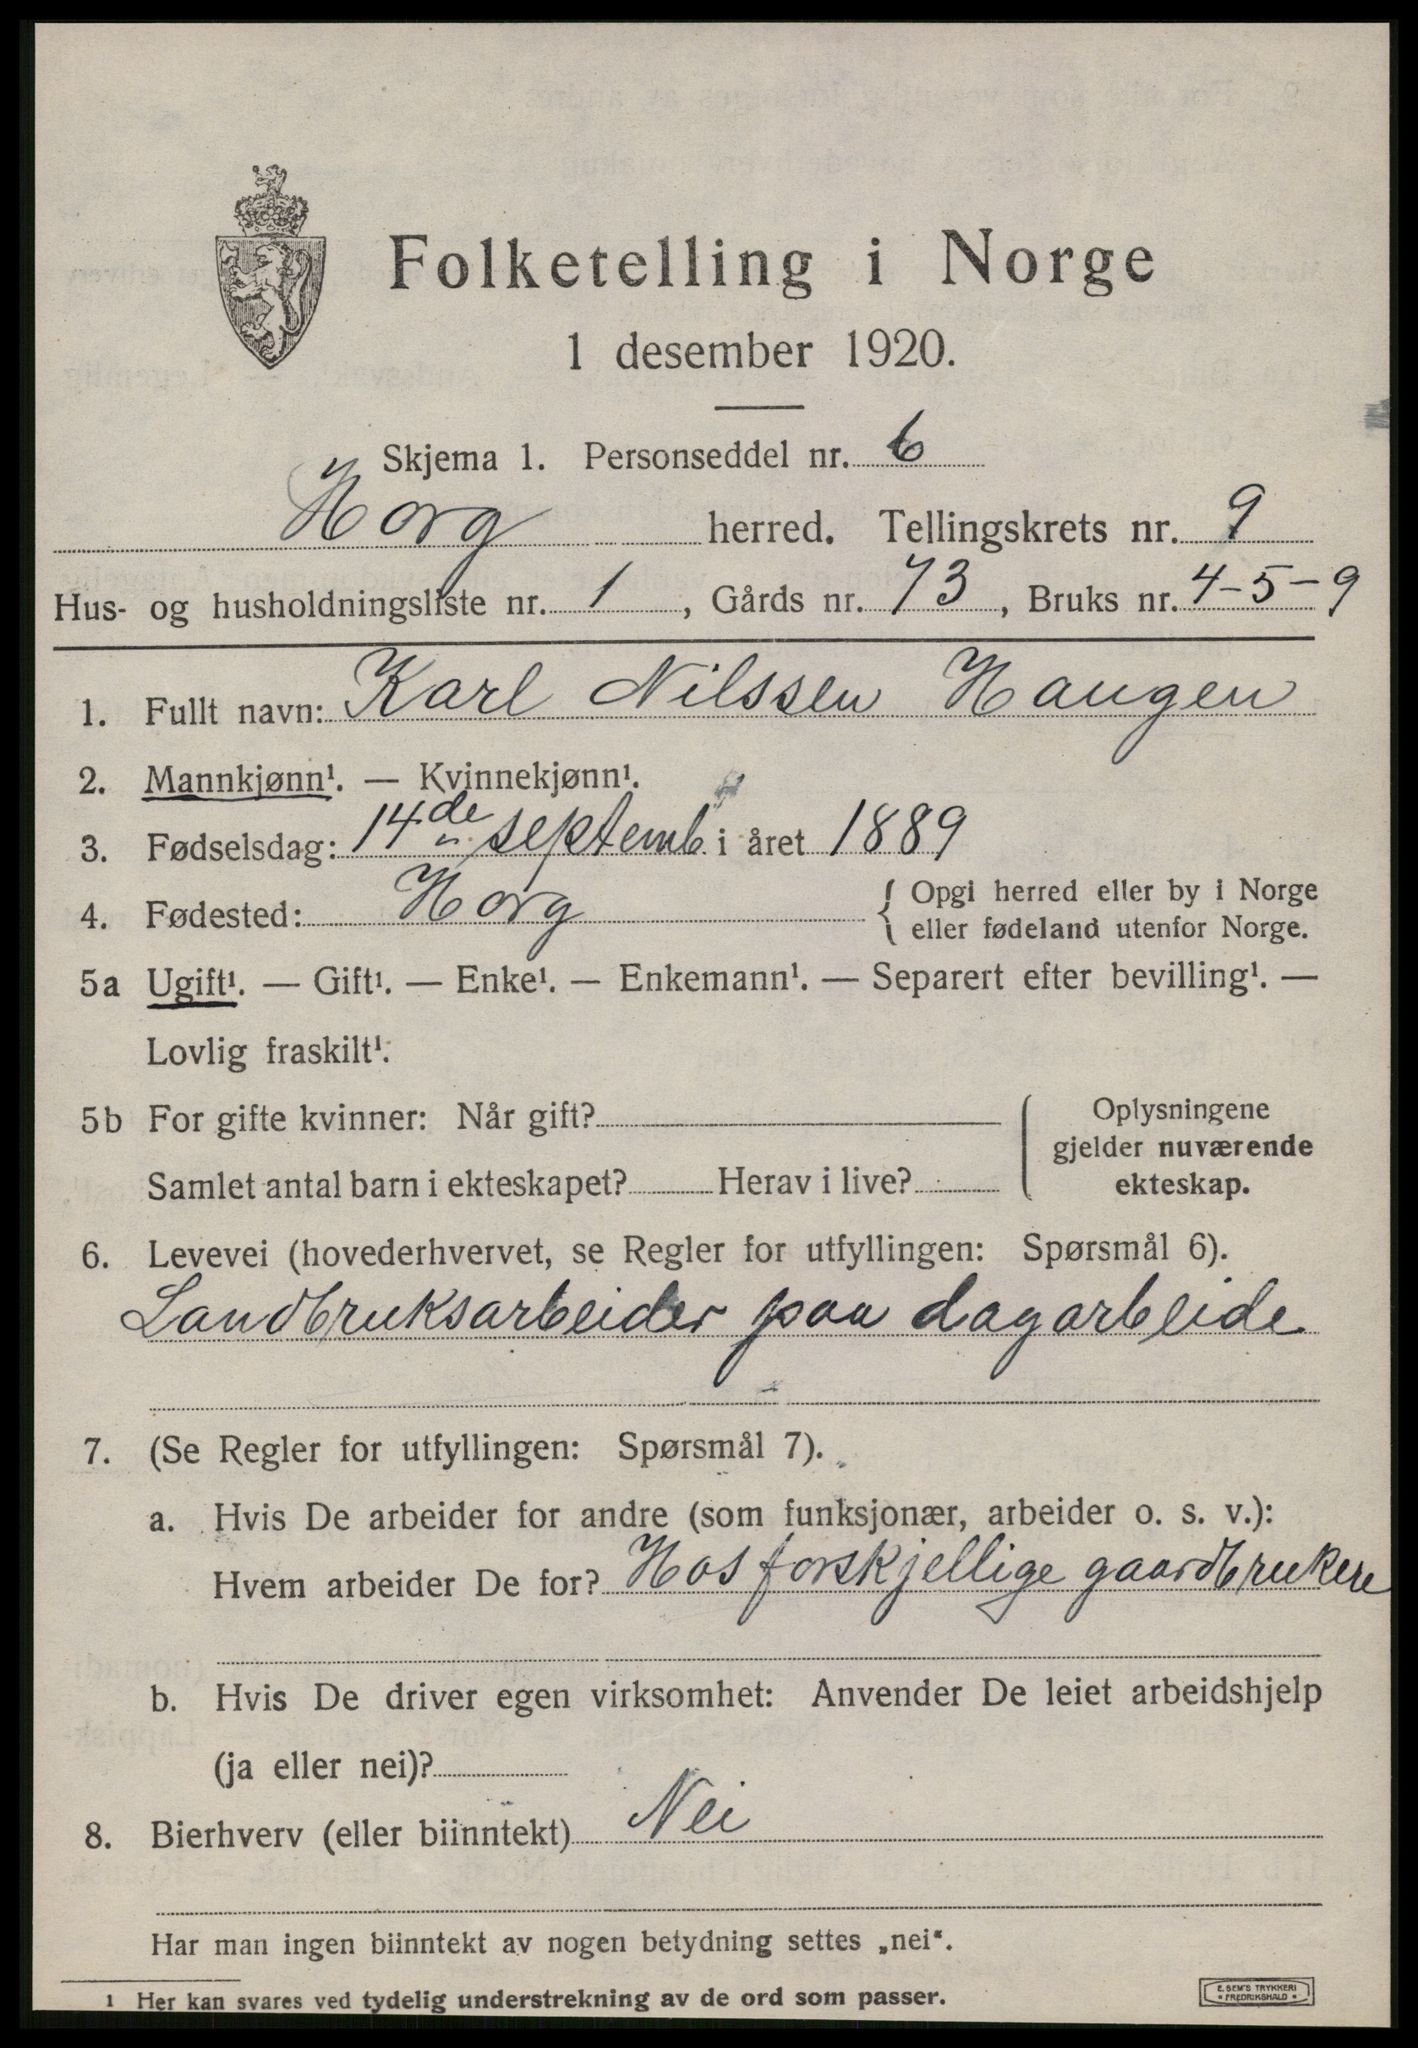 Folketelling i Norge
1 desember 1920.
Skjema 1. Personseddel nr. 6
Horg herred. Tellingskrets nr. 9
Hus- og husholdningsliste nr. 1, Gårds nr. 73, Bruks nr. 4-5-9
1. Fullt navn: Karl Nilssen Haugen
2. Mannkjønn¹. — Kvinnekjønn¹.
3. Fødselsdag: 14de septemb i året 1889
4. Fødested: Horg { Opgi herred eller by i Norge
eller fødeland utenfor Norge.
5a Ugift¹. — Gift¹. — Enke¹. — Enkemann¹. — Separert efter bevilling¹. —
Lovlig fraskilt¹.
5b For gifte kvinner: Når gift?
Samlet antal barn i ekteskapet? Herav i live?
Oplysningene
gjelder nuværende
ekteskap.
6. Levevei (hovederhvervet, se Regler for utfyllingen: Spørsmål 6).
Landbruksarbeider paa dagarbeide
7. (Se Regler for utfyllingen: Spørsmål 7).
a. Hvis De arbeider for andre (som funksjonær, arbeider o. s. v.):
Hvem arbeider De for? Hos forskjellige gaardbrukere
b. Hvis De driver egen virksomhet: Anvender De leiet arbeidshjelp
(ja eller nei)?
8. Bierhverv (eller biinntekt) Nei
Har man ingen biinntekt av nogen betydning settes „nei“.
¹ Her kan svares ved tydelig understrekning av de ord som passer.
E. SEM'S TRYKKERI
* FREDRIKSHALD *